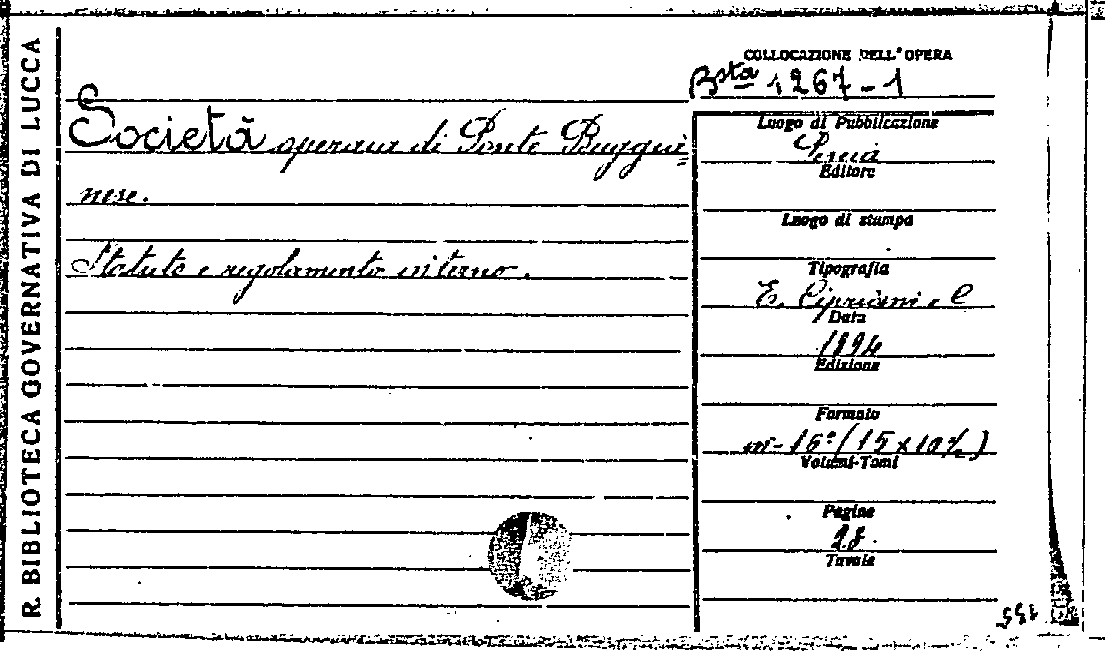 R. BIBLIOTECA GOVERNATIVA DI LUCCA
COLLOCAZIONE DELL'OPERA
Bsta 1267-1
Società operaia di Ponte Buggia
nese.
Statuto e regolamento interno.
Luogo di Pubblicazione
Pescia
Editore
Luogo di stampa
Tipografia
E. Cipriani e C
Data
1894
Edizione
Formato
in-16° (15x10½)
Volumi-Tomi
Pagine
28.
Tavole
155